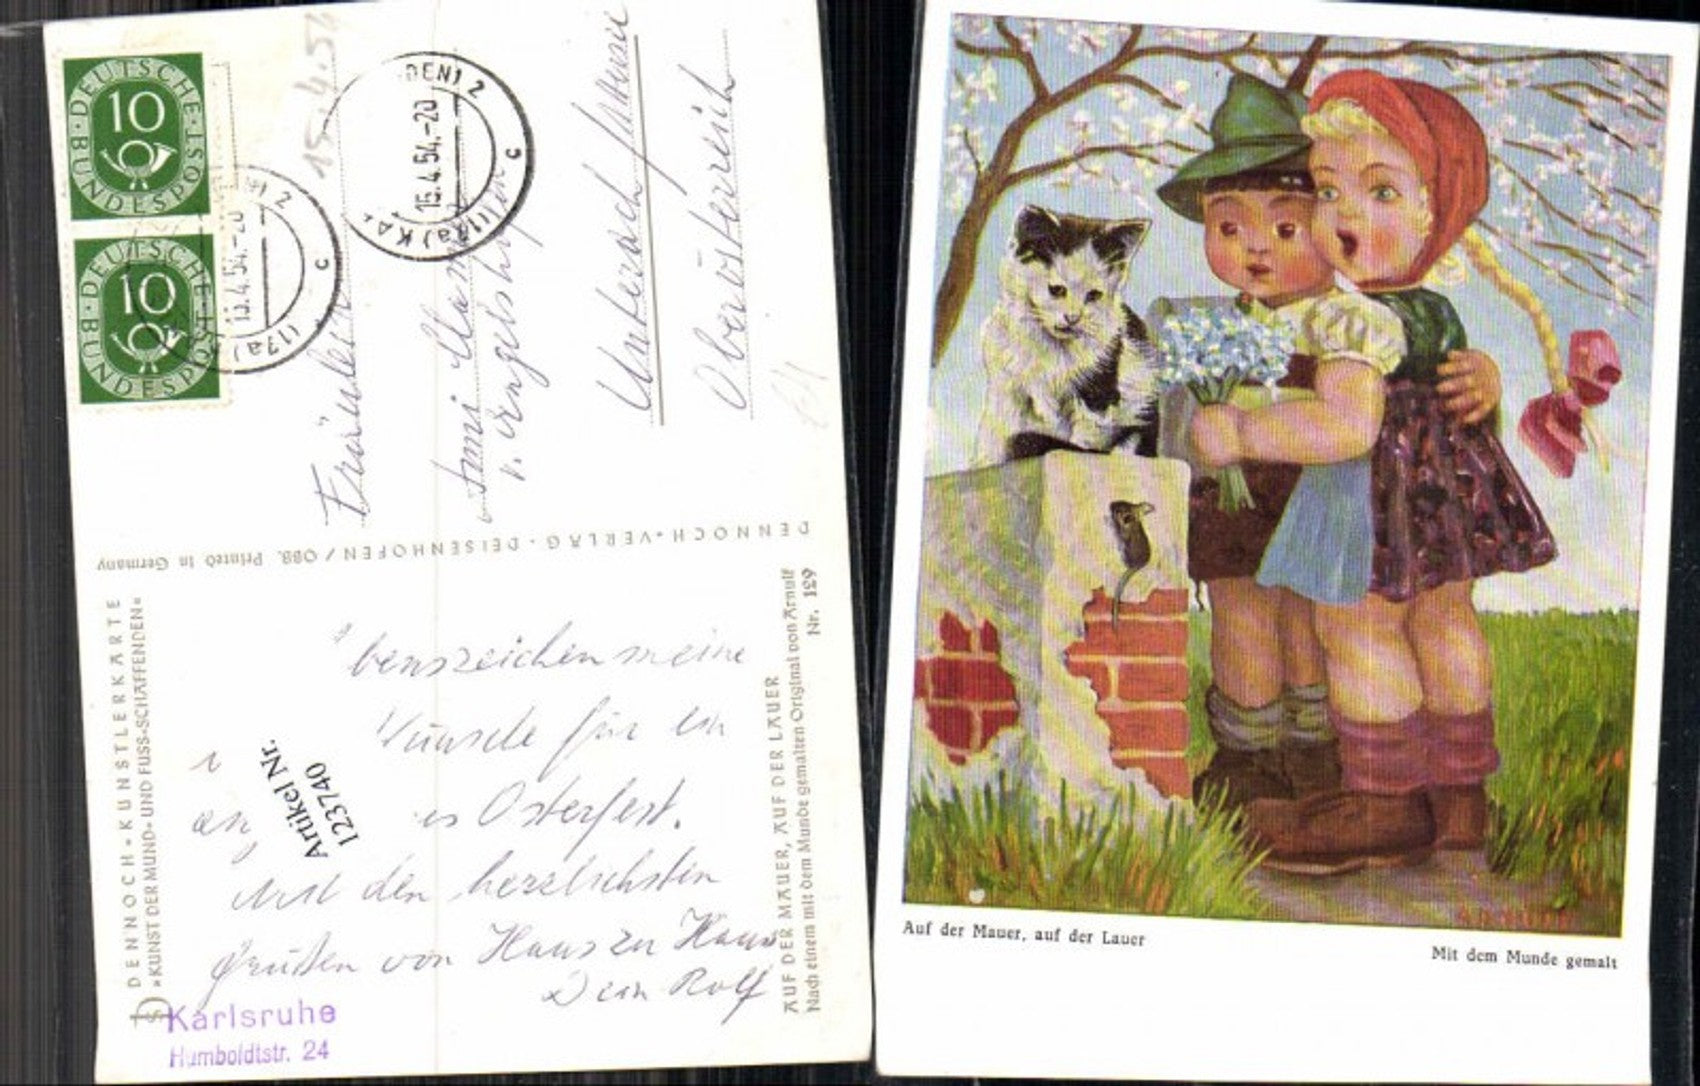 DEUTSCHE
10
BUNDESPOST
DEUTSCHE
10
BUNDESPOST
15.4.54
DEN) 2
15.4.54.-20
(17a) KA
c
2
15.4.54.-20
(17a)
c
Fräulein
v. Engelshofen
Unterach
Oberösterreich
DENNOCH-VERLAG · DEISENHOFEN/OBB. Printed in Germany
DENNOCH-KUNSTLERKARTE
»KUNST DER MUND- UND FUSS-SCHAFFENDEN«
benszeichen meine
Wünsche für ein
es Osterfest.
Mit den herzlichsten
Grüßen von Haus zu Haus
Dein Rolf
Artikel Nr.
123740
Karlsruhe
Humboldtstr. 24
AUF DER MAUER, AUF DER LAUER
Nach einem mit dem Munde gemalten Original von Arnulf
Nr. 129
Auf der Mauer, auf der Lauer
Mit dem Munde gemalt